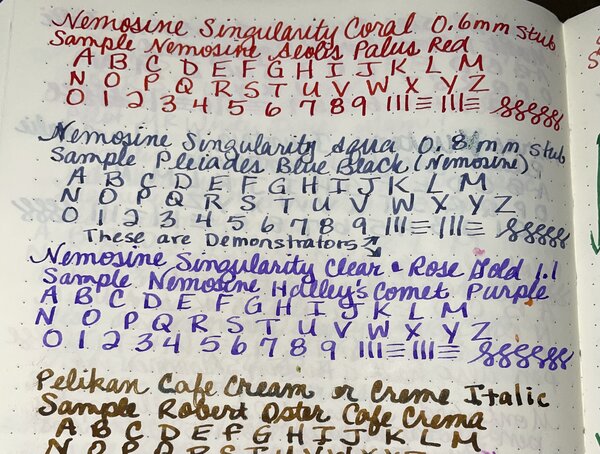 Nemosine Singularity Coral 0.6mm Stub
Sample Nemosine Aeolis Palus Red
A B C D E F G H I J K L M
N O P Q R S T U V W X Y Z
0 1 2 3 4 5 6 7 8 9
Nemosine Singularity Aqua 0.8mm Stub
Sample Pleiades Blue Black (Nemosine)
A B C D E F G H I J K L M
N O P Q R S T U V W X Y Z
0 1 2 3 4 5 6 7 8 9
These are Demonstrators
Nemosine Singularity Clear & Rose Gold 1.1
Sample Nemosine Halley's Comet Purple
A B C D E F G H I J K L M
N O P Q R S T U V W X Y Z
0 1 2 3 4 5 6 7 8 9
Pelikan Cafe Cream or Creme Italic
Sample Robert Oster Cafe Crema
A B C D E F G H I J K L M
N O P Q R S T U V W X Y Z